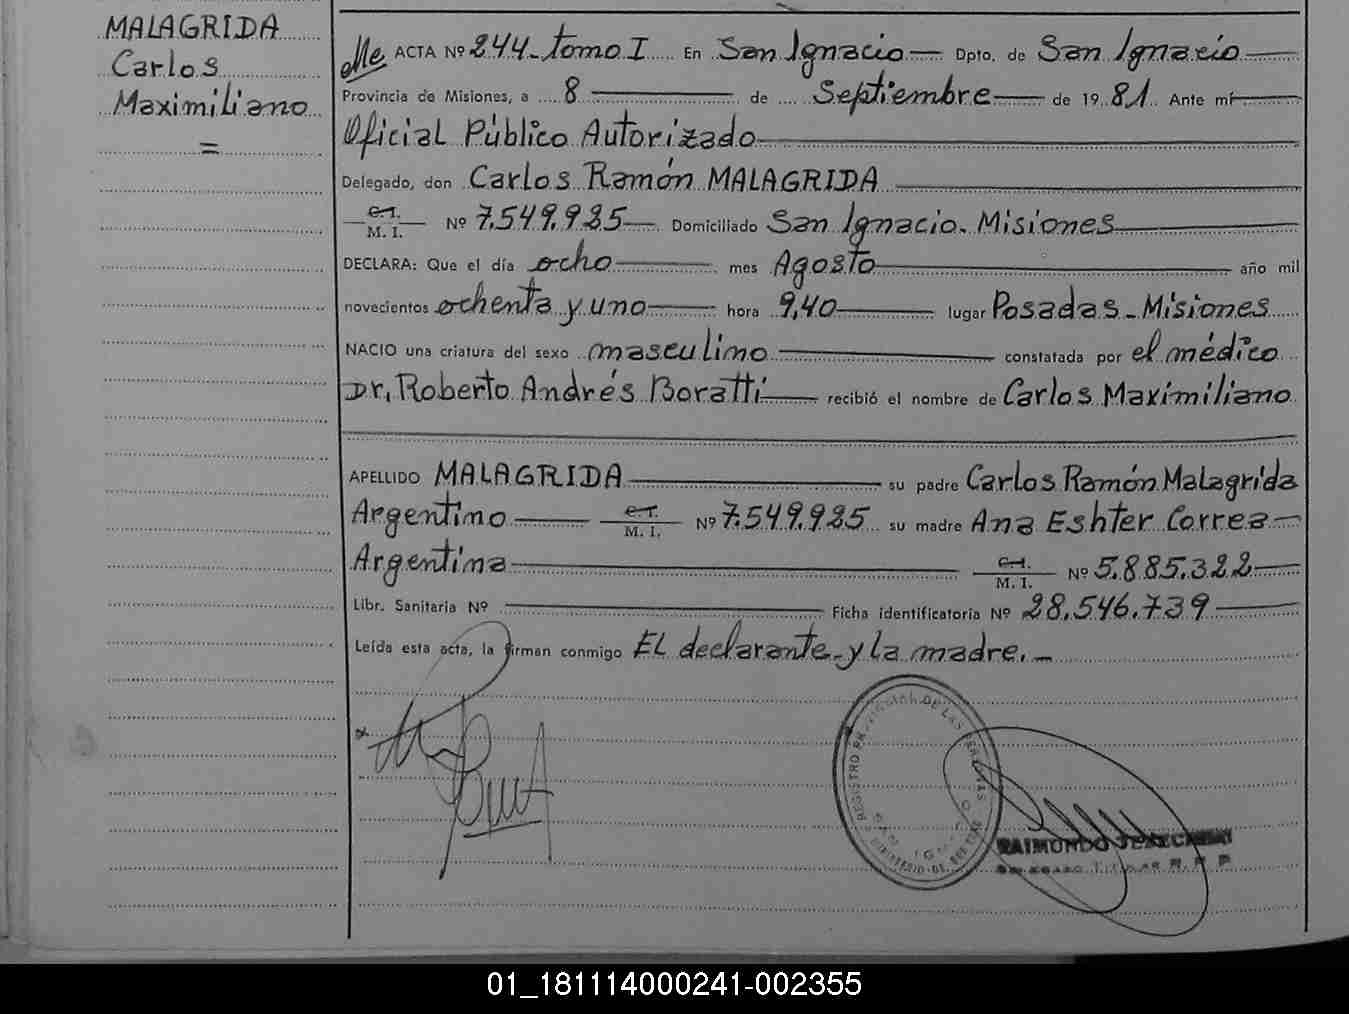 MALAGRIDA
Carlos
Maximiliano
=
ACTA Nº 244 - tomo I En San Ignacio Dpto. de San Ignacio
Provincia de Misiones, a 8 de Septiembre de 1981 Ante mí
Oficial Público Autorizado
Delegado, don Carlos Ramón MALAGRIDA
C.I. M. I. Nº 7.549.925 Domiciliado San Ignacio. Misiones
DECLARA: Que el día ocho mes Agosto año mil
novecientos ochenta y uno hora 9,40 lugar Posadas - Misiones
NACIO una criatura del sexo masculino constatada por el médico
Dr. Roberto Andrés Boratti recibió el nombre de Carlos Maximiliano
APELLIDO MALAGRIDA su padre Carlos Ramón Malagrida
Argentino C.I. M. I. Nº 7.549.925 su madre Ana Eshter Correa
Argentina C.I. M. I. Nº 5.885.322
Libr. Sanitaria Nº Ficha identificatoria Nº 28.546.739
Leída esta acta, la firman conmigo EL declarante - y la madre. -
REGISTRO PROVINCIAL DE LAS PERSONAS
SAN IGNACIO
MINISTERIO DE
RAIMUNDO
TITULAR R. P. P.
01_181114000241-002355